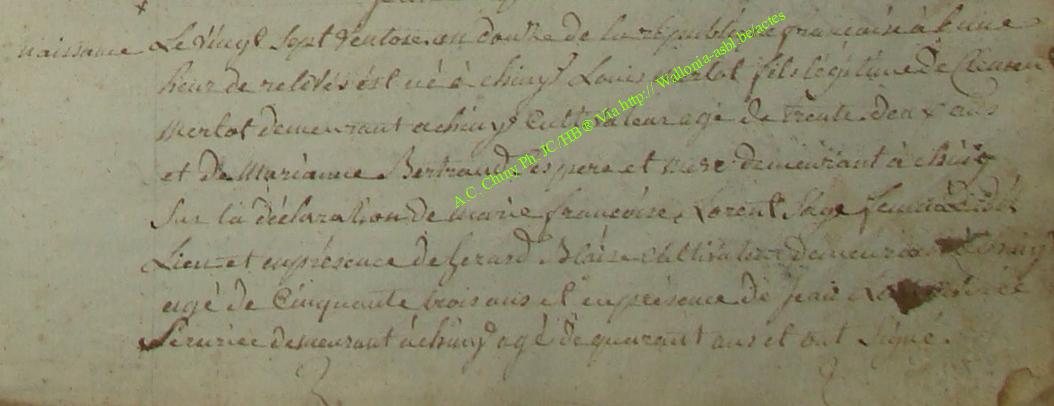 naissance Le Vingt Sept Ventose an douze de la république françoise à l'une
heur de relevés ést né à chiny Louis Merlot fils légitime de Clement
Merlot demeurant a chiny Cultivateur agé de trente deux ans
et De Marianne Bertrand ses pere et mere demeurant à chiny
Sur la déclaration de marie françoise Lorent Sage femme dudit
Lieu et en présence de Gerard Blaise Cultivateur demeurant à chiny
agé de Cinquante trois ans et en présence de jean
Serurier demeurant à chiny agé de quarant ans et ont Signé.
A.C. Chiny Ph. JC /HB ® Via http:// Wallonia-asbl.be/actes